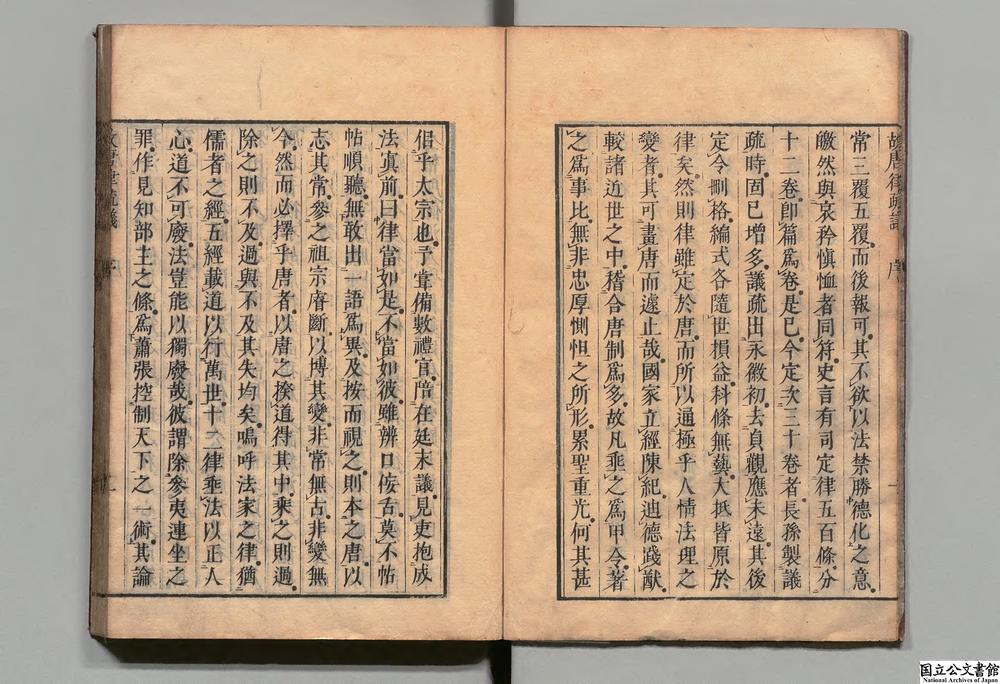 常三覆五覆而後報可其不欲以法禁勝德化之意
皦然與哀矜慎恤者同符史言有司定律五百條分
十二卷即篇爲卷是已今定次三十卷者長孫製議
疏時固已增多議疏出永徽初去貞觀應未遠其後
定令刪格編式各隨世損益科條無藝大抵皆原於
律矣然則律雖定於唐而所以通極乎人情法理之
變者其可畫唐而遽止哉國家立經陳紀迪德踐猷
較諸近世之中稽合唐制爲多故凡垂之爲甲令著
之爲事比無非忠厚惻怛之所形累聖重光何其甚
侣乎太宗也予嘗備數禮官陪在廷末議見吏抱成
法寘前曰律當如是不當如彼雖辨口佞舌莫不帖
帖順聽無敢出一語爲異及按而視之則本之唐以
志其常參之祖宗睿斷以博其變非常無古非變無
今然而必擇乎唐者以唐之揆道得其中乘之則過
除之則不及過與不及其失均矣嗚呼法家之律猶
儒者之經五經載道以行萬世十二律垂法以正人
心道不可廢法豈能以獨廢哉彼謂除參夷連坐之
罪作見知部主之條爲蕭張控制天下之一術其論
国立公文書館
National Archives of Japan